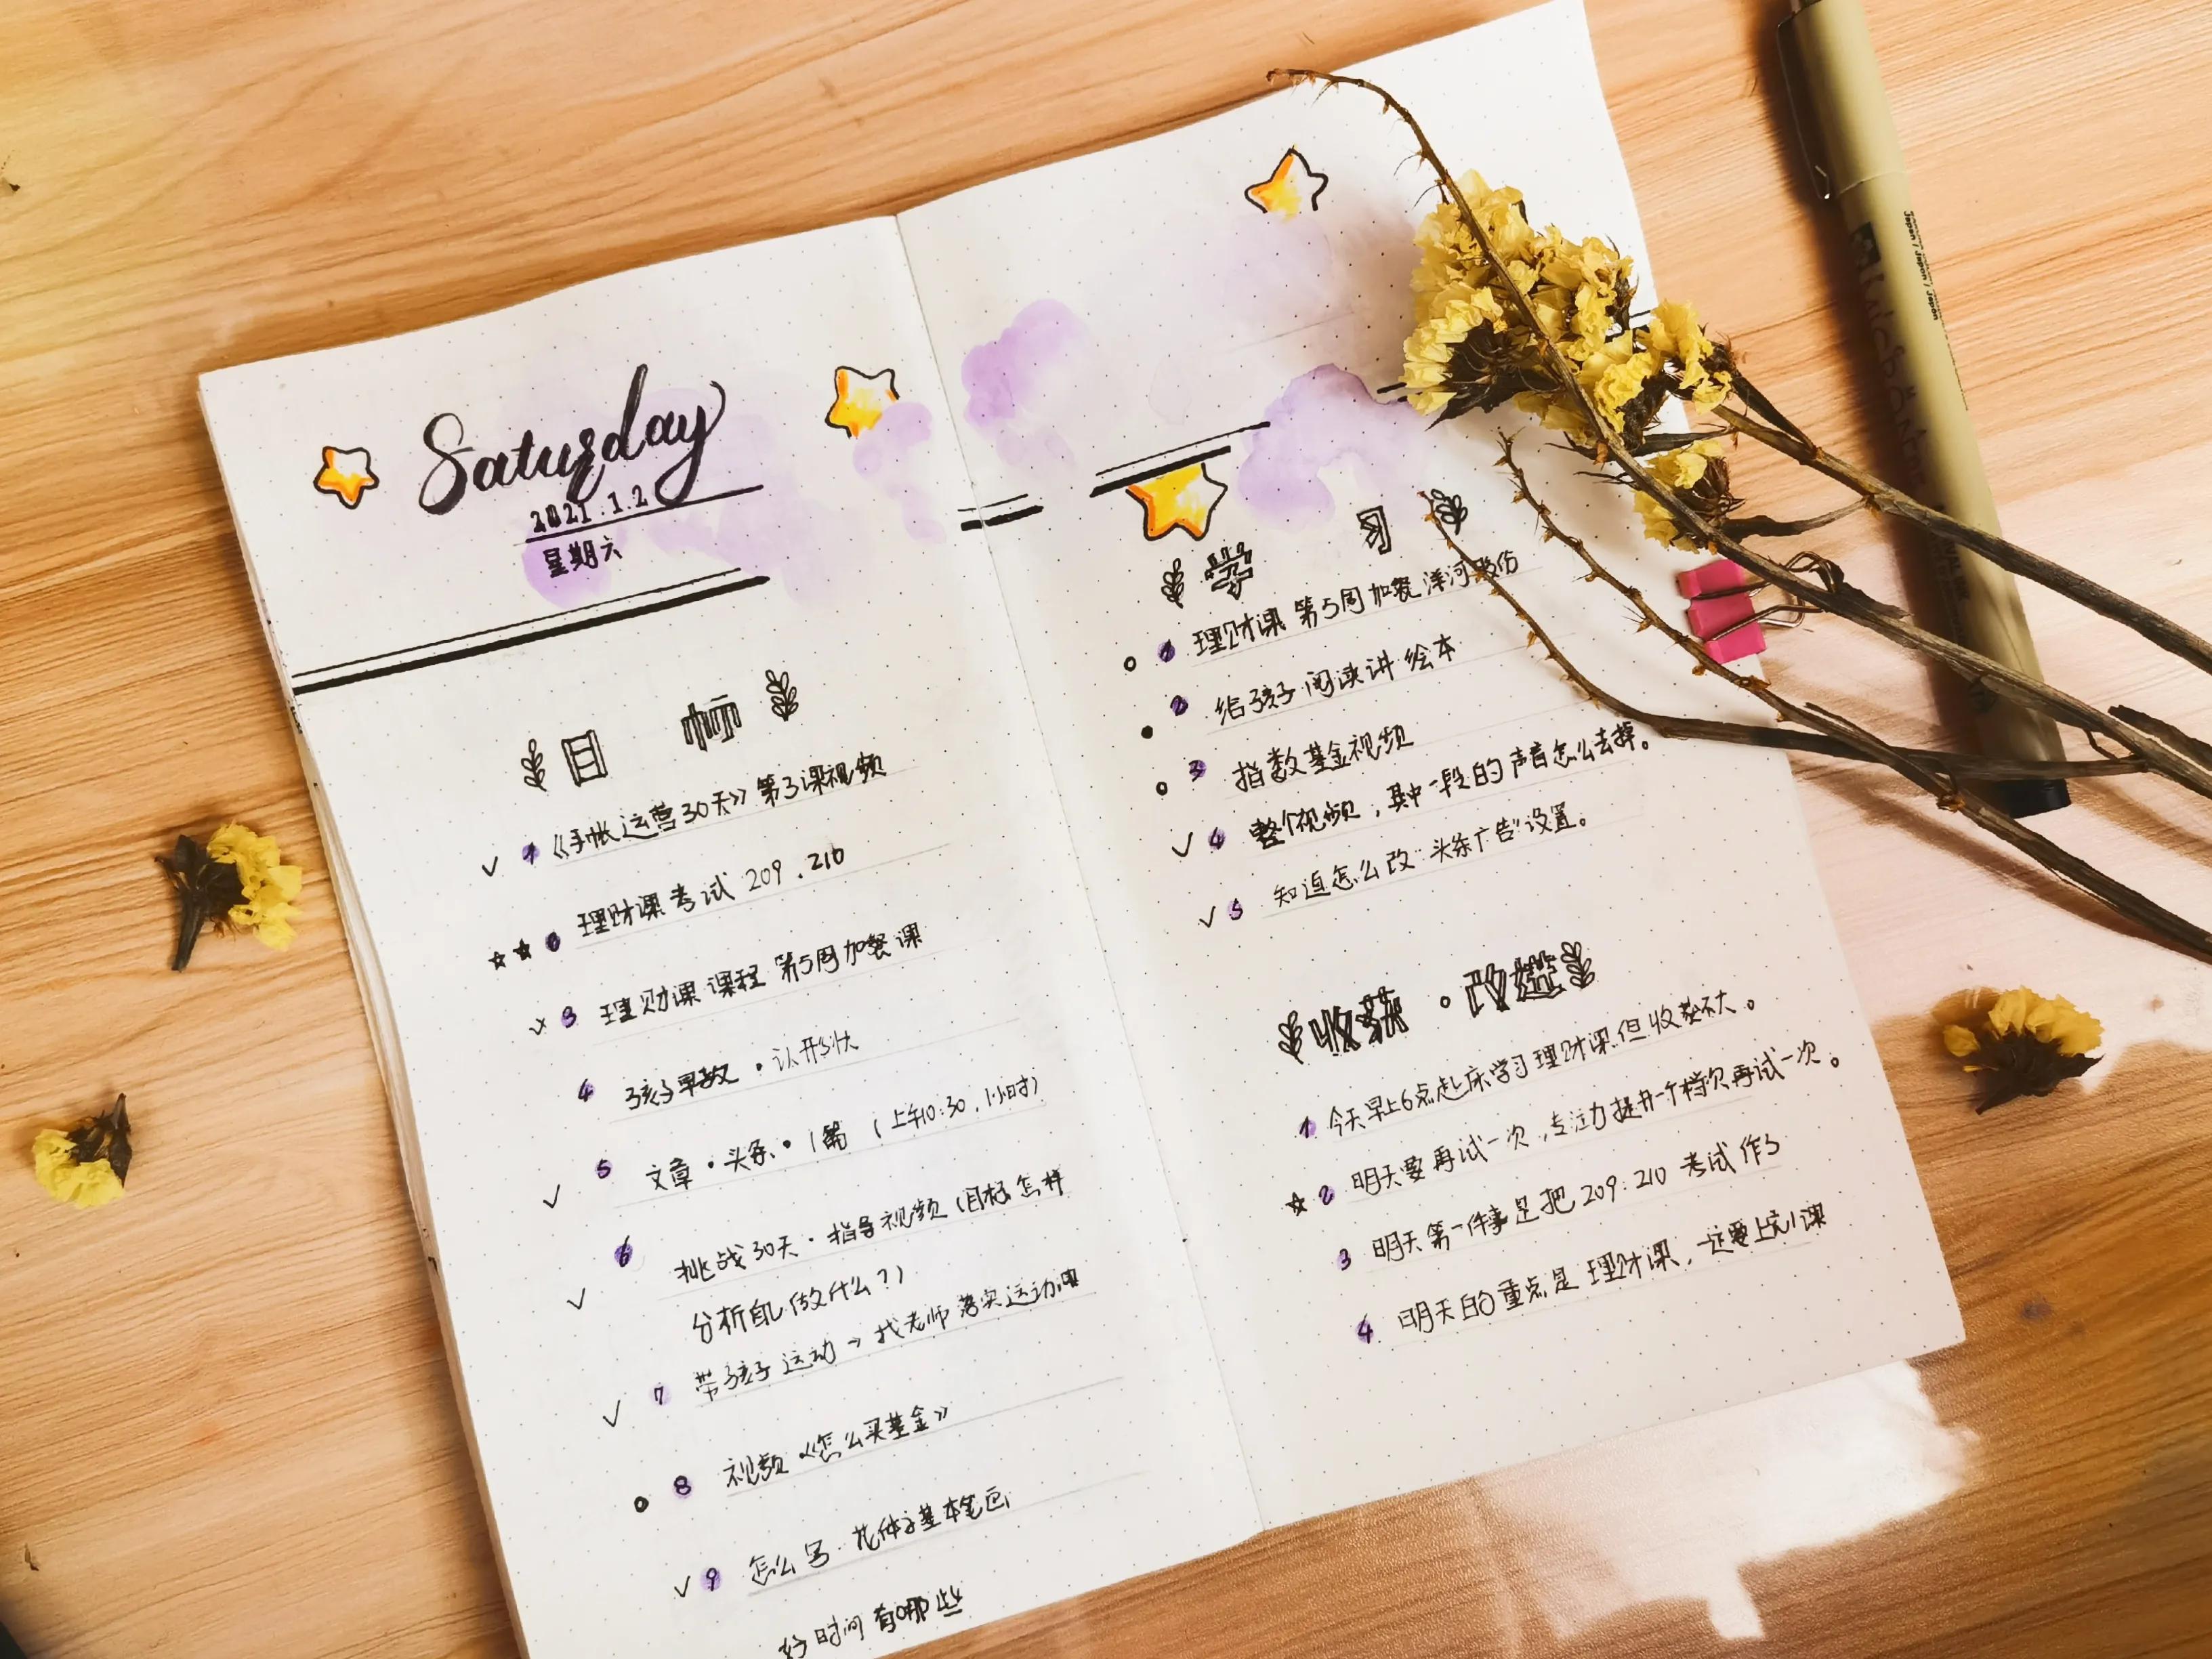 Saturday
2021.1.2
星期六
目标
1 《手帐运营30天》第3课视频
2 理财课考试 209.210
3 理财课课程 第5周加餐课
4 孩子早教·认形状
5 文章·头条·1篇(上午10:30,1小时)
6 挑战30天·指导视频(目标怎样
分析自己做什么?)
7 带孩子运动→找老师落实运动课
8 视频《怎么买基金》
9 怎么写·花体字基本笔画
好时间有哪些
学习
1 理财课 第5周加餐 洋河股份
2 给孩子阅读讲绘本
3 指数基金视频
4 整个视频,其中一段的声音怎么去掉。
5 知道怎么改“头条广告”设置。
收获·改进
1 今天早上6点起床学习理财课.但收获不大。
2 明天要再试一次,专注力提升一个档次再试一次。
3 明天第一件事是把209.210考试作了
4 明天的重点是理财课,一定要上完1课
Japan / Japon / Japan